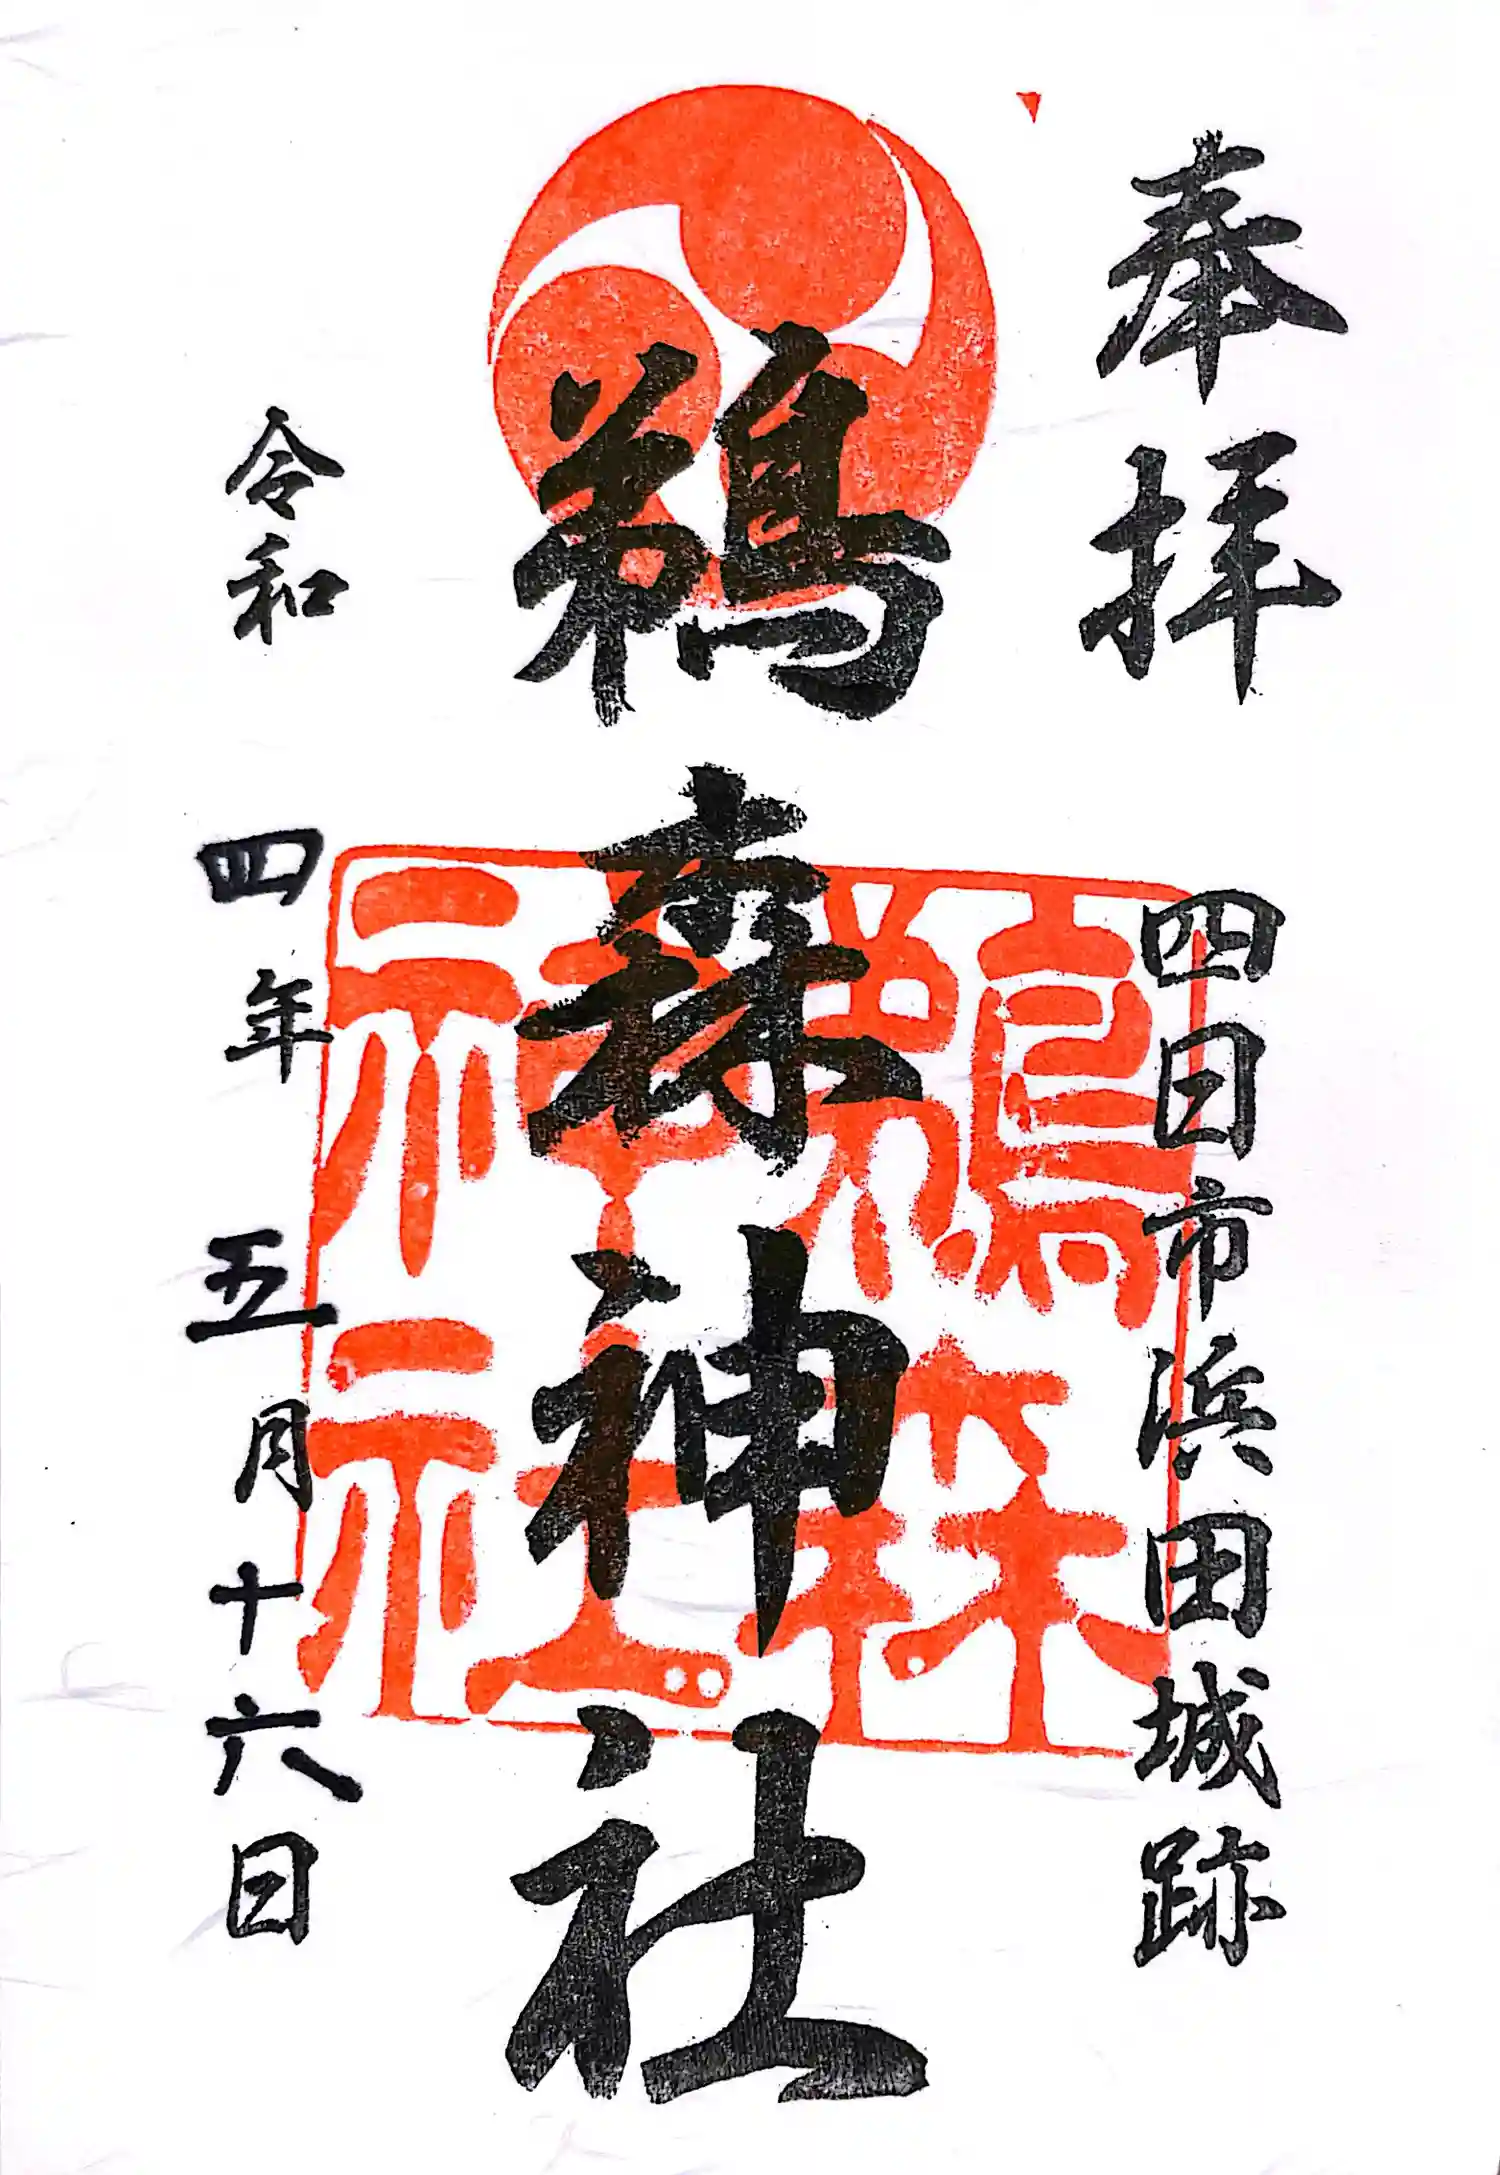 奉拝
四日市浜田城跡
鵜森神社
鵜森神社
令和四年五月十六日